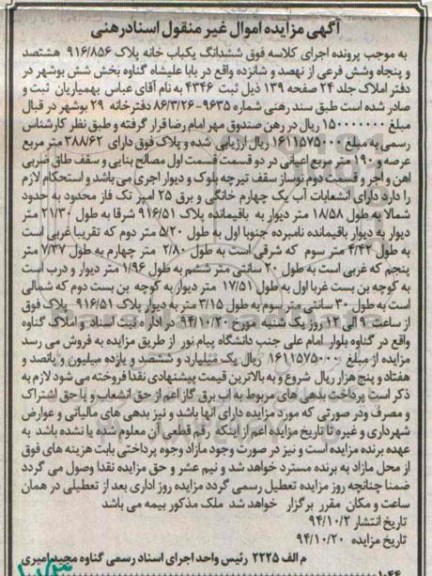 آگهی مزایده اموال غیر منقول اسناد رهنی
به موجب پرونده اجرای کلاسه فوق ششدانگ یکباب خانه پلاک ۹۱۶/۸۵۶ هشتصد
و پنجاه وشش فرعی از نهصد و شانزده واقع در بابا علیشاه گناوه بخش شش بوشهر در
دفتر املاک جلد ۲۴ صفحه ۱۳۹ ذیل ثبت ۴۳۴۶ به نام آقای عباس بهمیاریان ثبت و
صادر شده است طبق سند رهنی شماره ۹۶۳۵-۸۶/۳/۲۶ دفترخانه ۲۹ بوشهر در قبال
مبلغ ۱۵۰۰۰۰۰۰۰ ریال در رهن صندوق مهر امام رضا قرار گرفته و طبق نظر کارشناس
رسمی به مبلغ ۱۶۱۱۵۷۵۰۰۰ ریال ارزیابی شده و پلاک فوق دارای ۳۸۸/۶۲ متر مربع
عرصه و ۱۹۰ متر مربع اعیانی در دو قسمت قسمت اول مصالح بنایی و سقف طاق ضربی
اهن و آجر و قسمت دوم نوساز سقف تیرچه بلوک و دیوار اجری می باشد و استحکام لازم
را دارد دارای انشعابات آب یک چهارم خانگی و برق ۲۵ آمپر تک فاز محدود به حدود
شمالا به طول ۱۸/۵۸ متر دیوار به باقیمانده پلاک ۹۱۶/۵۱ شرقا به طول ۲۱/۳۰ متر
دیوار به دیوار باقیمانده نامبرده جنوبا اول به طول ۵/۲۰ متر دوم که تقریبا غربی است
به طول ۴/۴۲ متر سوم که شرقی است به طول ۲/۸۰ متر چهارم به طول ۷/۳۷ متر
پنجم که غربی است به طول ۲۰ سانتی متر ششم به طول ۱/۹۶ متر دیوار و درب است
به کوچه بن بست غربا اول به طول ۱۷/۵۱ متر دیوار به کوچه بن بست دوم که شمالی
است به طول ۳۰ سانتی متر سوم به طول ۳/۱۵ متر به دیوار پلاک ۹۱۶/۵۱ پلاک فوق
از ساعت ۹ الی ۱۲ روز یک شنبه مورخ ۹۴/۱۰/۲۰ در اداره ثبت اسناد و املاک گناوه
واقع در گناوه بلوار امام علی جنب دانشگاه پیام نور از طریق مزایده به فروش می رسد
مزایده از مبلغ ۱۶۱۱۵۷۵۰۰۰ ریال یک میلیارد و ششصد و یازده میلیون و پانصد و
هفتاد و پنج هزار ریال شروع و به بالاترین قیمت پیشنهادی نقدا فروخته می شود لازم به
ذکر است پرداخت بدهی های مربوط به آب برق گاز اعم از حق انشعاب و یا حق اشتراک
و مصرف ودر صورتی که مورد مزایده دارای آنها باشد و نیز بدهی های مالیاتی و عوارض
شهرداری و غیره تا تاریخ مزایده اعم از اینکه رقم قطعی آن معلوم شده یا نشده باشد به
عهده برنده مزایده است و نیز در صورت وجود مازاد وجوه پرداختی بابت هزینه های فوق
از محل مازاد به برنده مسترد خواهد شد و نیم عشر و حق مزایده نقدا وصول می گردد
ضمنا چنانچه روز مزایده تعطیل رسمی گردد مزایده روز اداری بعد از تعطیلی در همان
ساعت و مکان مقرر برگزار خواهد شد ملک مذکور بیمه می باشد
تاریخ انتشار ۹۴/۱۰/۲
تاریخ مزایده ۹۴/۱۰/۲۰
م الف ۲۲۲۵ رئیس واحد اجرای اسناد رسمی گناوه مجید امیری